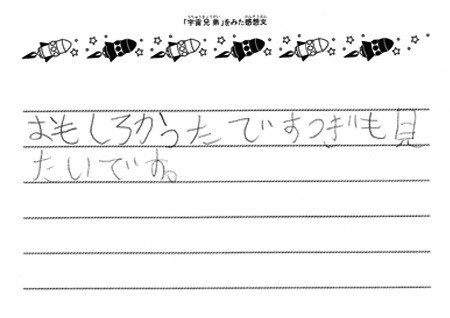 「宇宙兄弟」をみた感想文
おもしろかったですつぎも見
たいです。